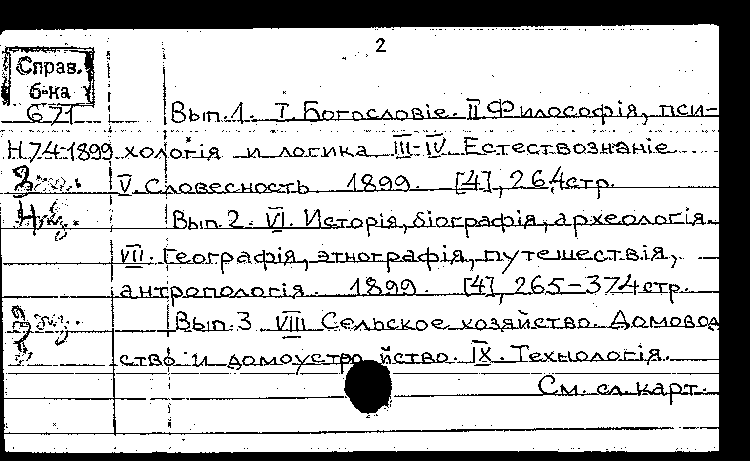 2
Справ.
б-ка
671
Вып.1. I. Богословіе. II Философія, пси-
Н74-1899 хологія и логика III-IV. Естествознаніе
V. Словесность 1899. [4], 264стр.
Вып.2. VI. Исторія, біографія, археологія.
VII. Географія, этнографія, путешествія,
антропологія. 1899. [4], 265-374стр.
Вып.3 VIII Сельское хозяйство. Домовод
ство и домоустройство. IX. Технологія.
См. сл. карт.